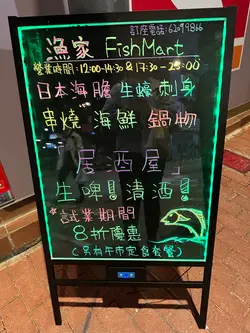 訂座電話:62099866
漁家 FishMart
營業時間:12:00-14:30 & 17:30-23:00
日本海膽 生蠔 刺身
串燒 海鮮 鍋物
「居酒屋」
生啤!清酒!
*試業期間*
8折優惠
(另有午市定食套餐)